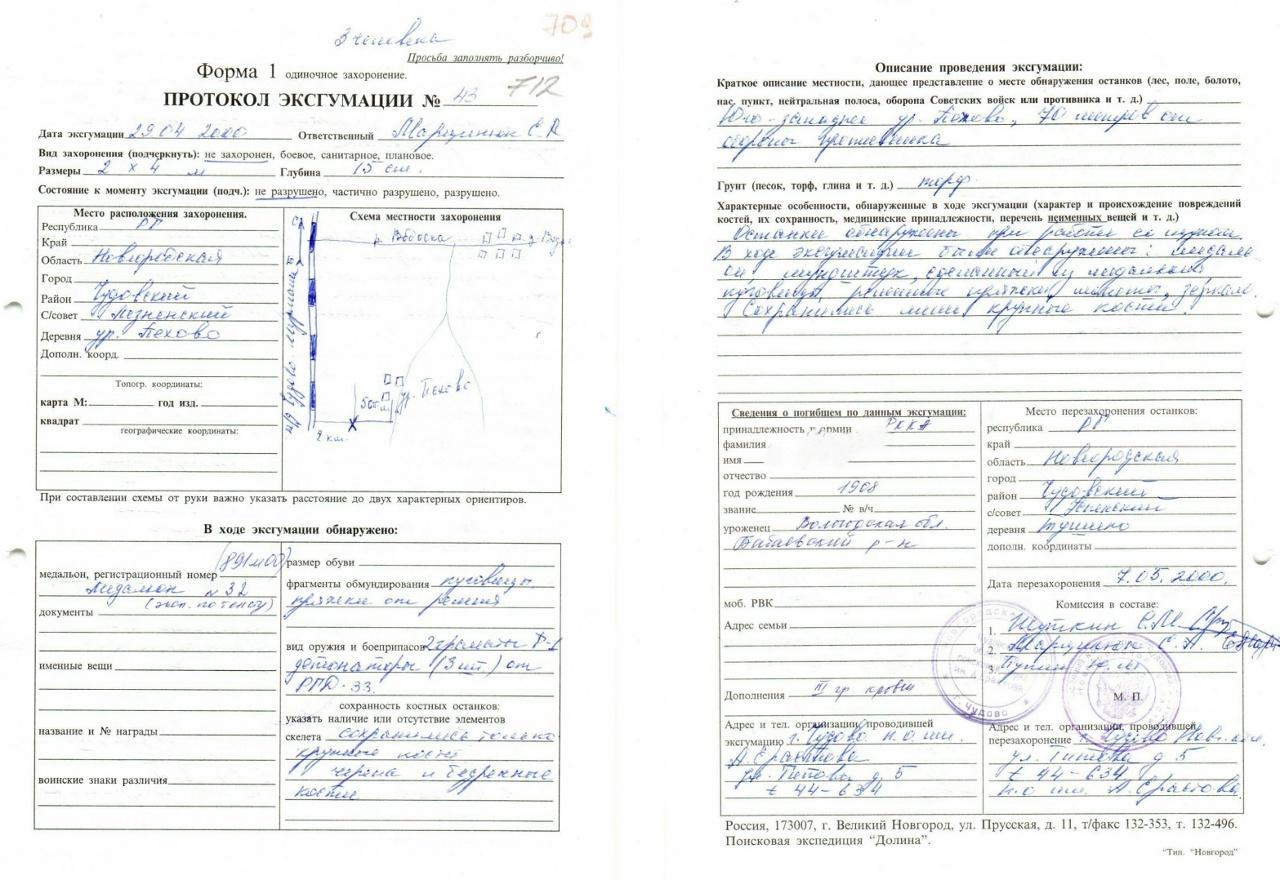 709
3 человека
Просьба заполнять разборчиво!
Форма 1 одиночное захоронение.
712
ПРОТОКОЛ ЭКСГУМАЦИИ № 43
Дата эксгумации 29 04 2000 Ответственный Марцинюк С.А
Вид захоронения (подчеркнуть): не захоронен, боевое, санитарное, плановое.
Размеры 2 х 4 м Глубина 15 см.
Состояние к моменту эксгумации (подч.): не разрушено, частично разрушено, разрушено.
Место расположения захоронения.
Республика РФ
Край
Область Новгородская
Город
Район Чудовский
С/совет
Деревня ур. Пехово
Дополн. коорд.
Топогр. координаты:
карта М: год изд.
квадрат
географические координаты:
Схема местности захоронения
С
р.
ж/д Чудово - Мурманск
ур. Пехово
500 м
2 км.
При составлении схемы от руки важно указать расстояние до двух характерных ориентиров.
В ходе эксгумации обнаружено:
медальон, регистрационный номер
Медальон № 32
(эксп. по тексту)
документы
именные вещи
название и № награды
воинские знаки различия
размер обуви
фрагменты обмундирования пуговицы
пряжки от ремня
вид оружия и боеприпасов 2 гранаты F-1
детонаторы (3 шт) от
РГД-33.
сохранность костных останков:
указать наличие или отсутствие элементов
скелета сохранились только
крупные кости
черепа и бедренные
кости
Описание проведения эксгумации:
Краткое описание местности, дающее представление о месте обнаружения останков (лес, поле, болото,
нас. пункт, нейтральная полоса, оборона Советских войск или противника и т. д.)
Юго-западнее ур. Пехово, 70 метров от
обороны противника
Грунт (песок, торф, глина и т. д.) торф.
Характерные особенности, обнаруженные в ходе эксгумации (характер и происхождение повреждений
костей, их сохранность, медицинские принадлежности, перечень неименных вещей и т. д.)
Останки обнаружены при работе со щупом.
В ходе эксгумации были обнаружены: медаль-
он, мундштук, сделанный из медальона,
пуговицы, ременные пряжки, монеты, зеркало.
Сохранились лишь крупные кости.
Сведения о погибшем по данным эксгумации:
принадлежность к армии РККА
фамилия
имя
отчество
год рождения 1908
звание № в/ч
уроженец Вологодская обл.
Бабаевский р-н
моб. РВК
Адрес семьи
Дополнения III гр крови
Адрес и тел. организации, проводившей
эксгумацию г. Чудово п.о. им.
А. Ерастова
ул. Титова д. 5
t 44-634
Место перезахоронения останков:
республика РФ
край
область Новгородская
город
район Чудовский
с/совет Успенский
деревня Тушино
дополн. координаты
Дата перезахоронения 7.05.2000.
Комиссия в составе:
1. Шуткин С.М.
2. Марцинюк С. А.
3.
М. П.
г. ЧУДОВО
Адрес и тел. организации, проводившей
перезахоронение г. Чудово Новг. обл.
ул. Титова д 5
t 44-634
п.о им. А. Ерастова.
Россия, 173007, г. Великий Новгород, ул. Прусская, д. 11, т/факс 132-353, т. 132-496.
Поисковая экспедиция “Долина”.
“Тип. “Новгород”